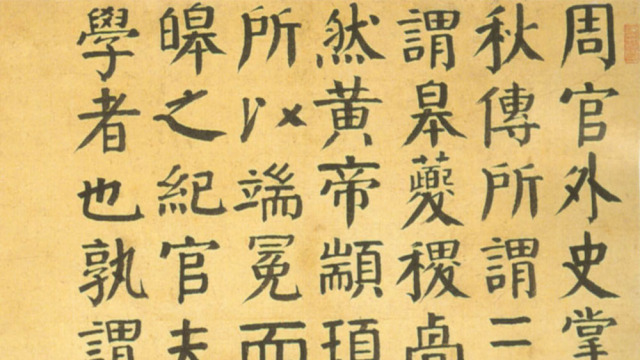 周官外史掌
秋傳所謂二
謂皋夔稷卨
然黃帝顓頊
所以端冕而
皞之紀官夫
學者也孰謂